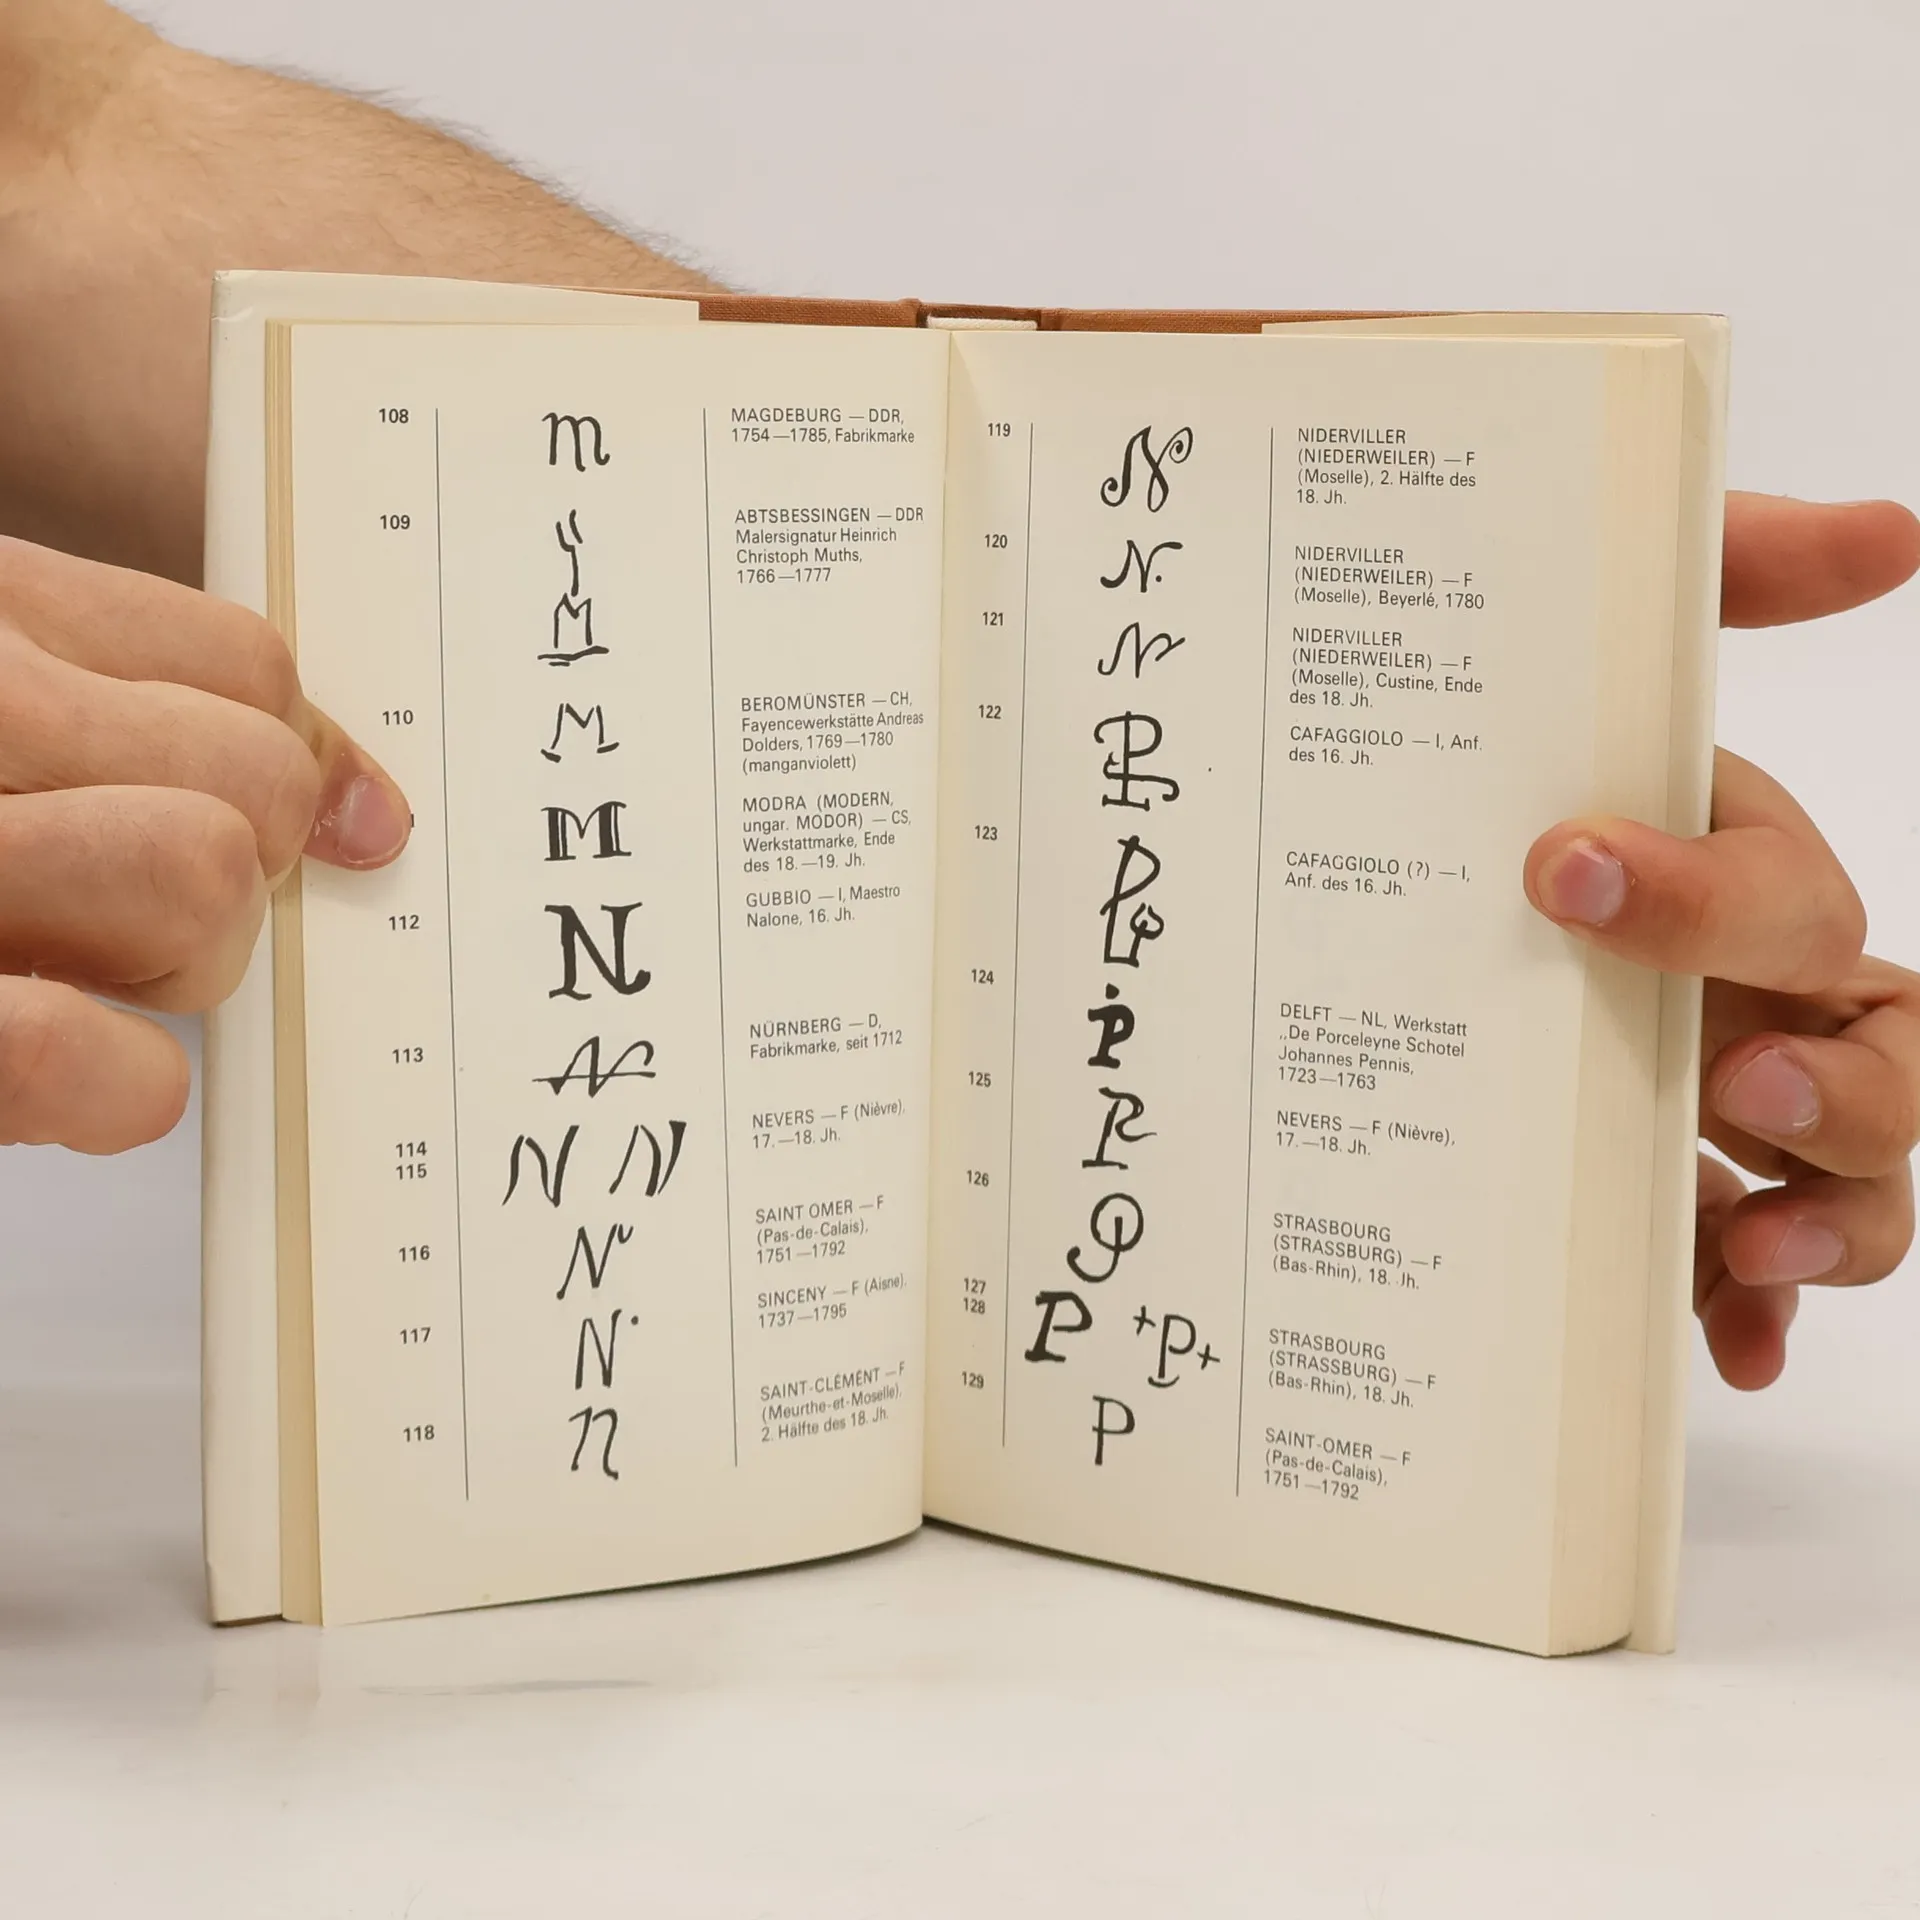 108
m
MAGDEBURG — DDR,
1754—1785, Fabrikmarke
109
M
ABTSBESSINGEN — DDR
Malersignatur Heinrich
Christoph Muths,
1766—1777
110
M
BEROMÜNSTER — CH,
Fayencewerkstätte Andreas
Dolders, 1769—1780
(manganviolett)
M
MODRA (MODERN,
ungar. MODOR) — CS,
Werkstattmarke, Ende
des 18.—19. Jh.
112
N
GUBBIO — I, Maestro
Nalone, 16. Jh.
113
N
NÜRNBERG — D,
Fabrikmarke, seit 1712
114
115
N N
NEVERS — F (Nièvre),
17.—18. Jh.
116
N
SAINT OMER — F
(Pas-de-Calais),
1751—1792
117
N.
SINCENY — F (Aisne),
1737—1795
118
n
SAINT-CLÉMENT — F
(Meurthe-et-Moselle),
2. Hälfte des 18. Jh.
119
N
NIDERVILLER
(NIEDERWEILER) — F
(Moselle), 2. Hälfte des
18. Jh.
120
N.
NIDERVILLER
(NIEDERWEILER) — F
(Moselle), Beyerlé, 1780
121
N
NIDERVILLER
(NIEDERWEILER) — F
(Moselle), Custine, Ende
des 18. Jh.
122
CAFAGGIOLO — I, Anf.
des 16. Jh.
123
CAFAGGIOLO (?) — I,
Anf. des 16. Jh.
124
P
DELFT — NL, Werkstatt
„De Porceleyne Schotel
Johannes Pennis,
1723—1763
125
NEVERS — F (Nièvre),
17.—18. Jh.
126
P
STRASBOURG
(STRASSBURG) — F
(Bas-Rhin), 18. Jh.
127
128
P +P+
STRASBOURG
(STRASSBURG) — F
(Bas-Rhin), 18. Jh.
129
P
SAINT-OMER — F
(Pas-de-Calais),
1751—1792